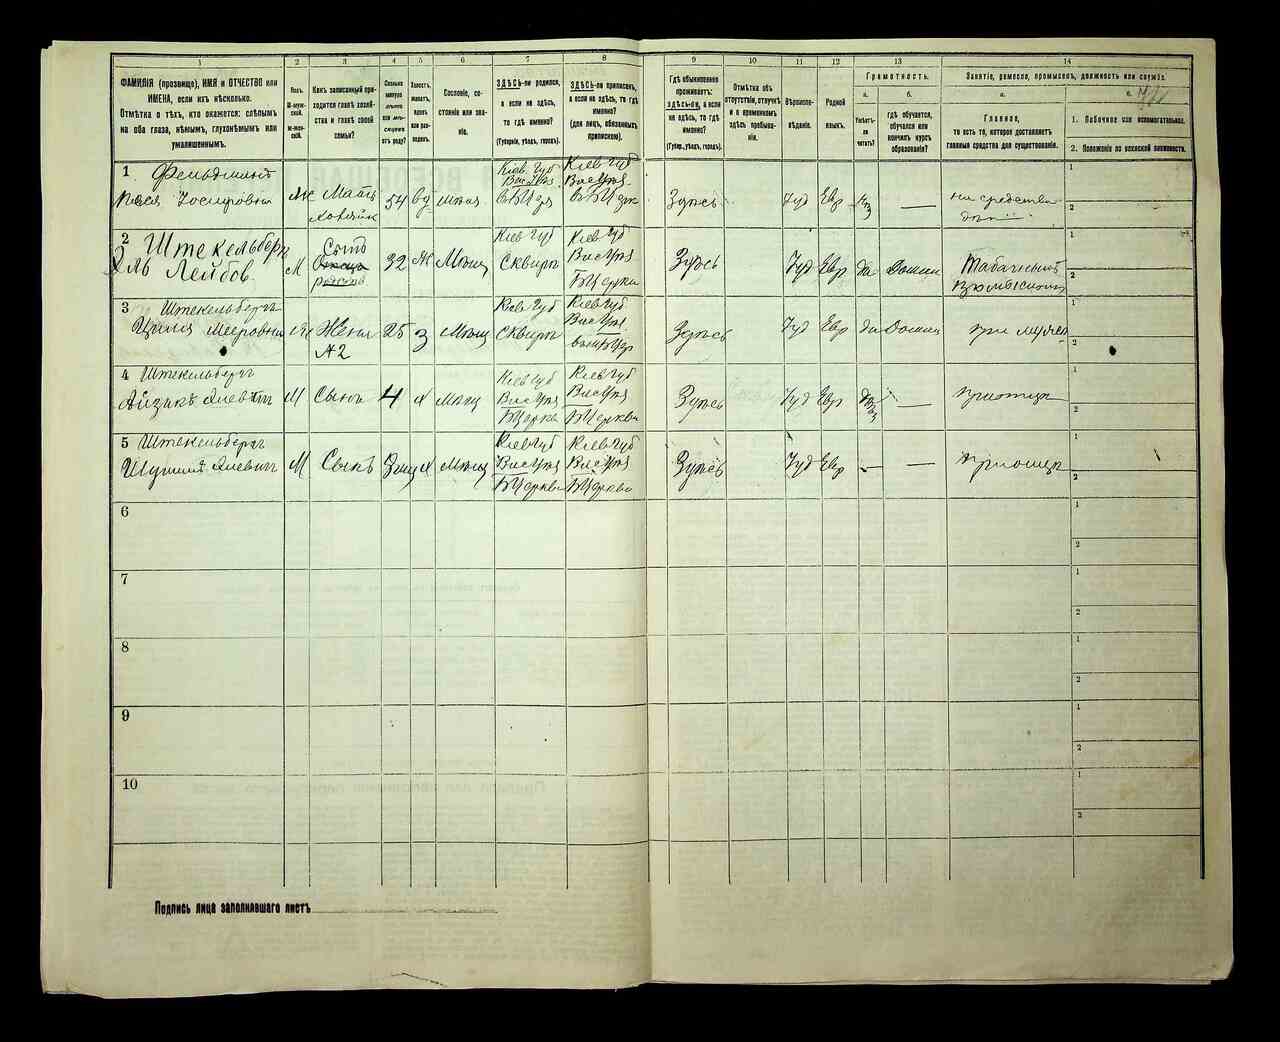 1 2 3 4 5 6 7 8 9 10 11 12 13 14
ФАМИЛІЯ (прозвище), ИМЯ и ОТЧЕСТВО или ИМЕНА, если ихъ нѣсколько.
Отмѣтка о тѣхъ, кто окажется: слѣпымъ на оба глаза, нѣмымъ, глухонѣмымъ или умалишеннымъ.
Полъ.
М-муж-
ской.
Ж-жен-
скій.
Какъ записанный при-
ходится главѣ хозяй-
ства и главѣ своей
семьи?
Сколько
минуло
лѣтъ
или мѣ-
сяцевъ
отъ роду?
Холостъ,
женатъ,
вдовъ
или раз-
веденъ.
Сословіе, со-
стояніе или зва-
ніе.
ЗДѢСЬ-ли родился,
а если не здѣсь,
то гдѣ именно?
(Губернія, уѣздъ, городъ).
ЗДѢСЬ-ли приписанъ,
а если не здѣсь, то гдѣ
именно?
(для лицъ, обязанныхъ
припиской).
Гдѣ обыкновенно
проживаетъ:
здѣсь-ли, а если
не здѣсь, то гдѣ
именно?
(Губерн., уѣздъ, городъ).
Отмѣтка объ
отсутствіи, отлучкѣ
и о временномъ
здѣсь пребыва-
ніи.
Вѣроиспо-
вѣданіе.
Родной
языкъ.
Грамотность.
а.
Умѣетъ-
ли
читать?
б.
Гдѣ обучается,
обучался или
кончилъ курсъ
образованія?
Занятіе, ремесло, промыселъ, должность или служба.
а.
Главное,
то есть то, которое доставляетъ
главныя средства для существованія.
в.
1. Побочное или вспомогательное.
2. Положеніе по воинской повинности.
1 Фельдманъ
Іосифовна
Ж
Мать
54 вд
Кіев Губ
Кіев Губ
Здѣсь
Іуд Евр
—
на средства
1
2
2 Штекельберг
Эль Лейбов
М
Сынъ
32 ж Мѣщ
Кіев Губ
Сквиръ
Кіев Губ
Вас Уѣз
БЦеркви
Здѣсь
Іуд Евр да Домаш
Табачный
1
2
3 Штекельбергъ
Мееровна
Жена
№2
25 з Мѣщ
Кіев Губ
Сквиръ
Кіев Губ
Вас Уѣз
Здѣсь
Іуд Евр да Домаш
при мужѣ
1
2
4 Штекельбергъ
Айзикъ
М Сынъ 4 х Мѣщ
Кіев Губ
Вас Уѣз
БЦеркви
Кіев Губ
Вас Уѣз
БЦеркви
Здѣсь
Іуд Евр
—
при отцѣ
1
2
5 Штекельбергъ
М Сынъ
х Мѣщ
Кіев Губ
Вас Уѣз
БЦеркви
Кіев Губ
Вас Уѣз
БЦеркви
Здѣсь
Іуд Евр — —
при отцѣ
1
2
6
1
2
7
1
2
8
1
2
9
1
2
10
1
2
Подпись лица заполнявшаго листъ